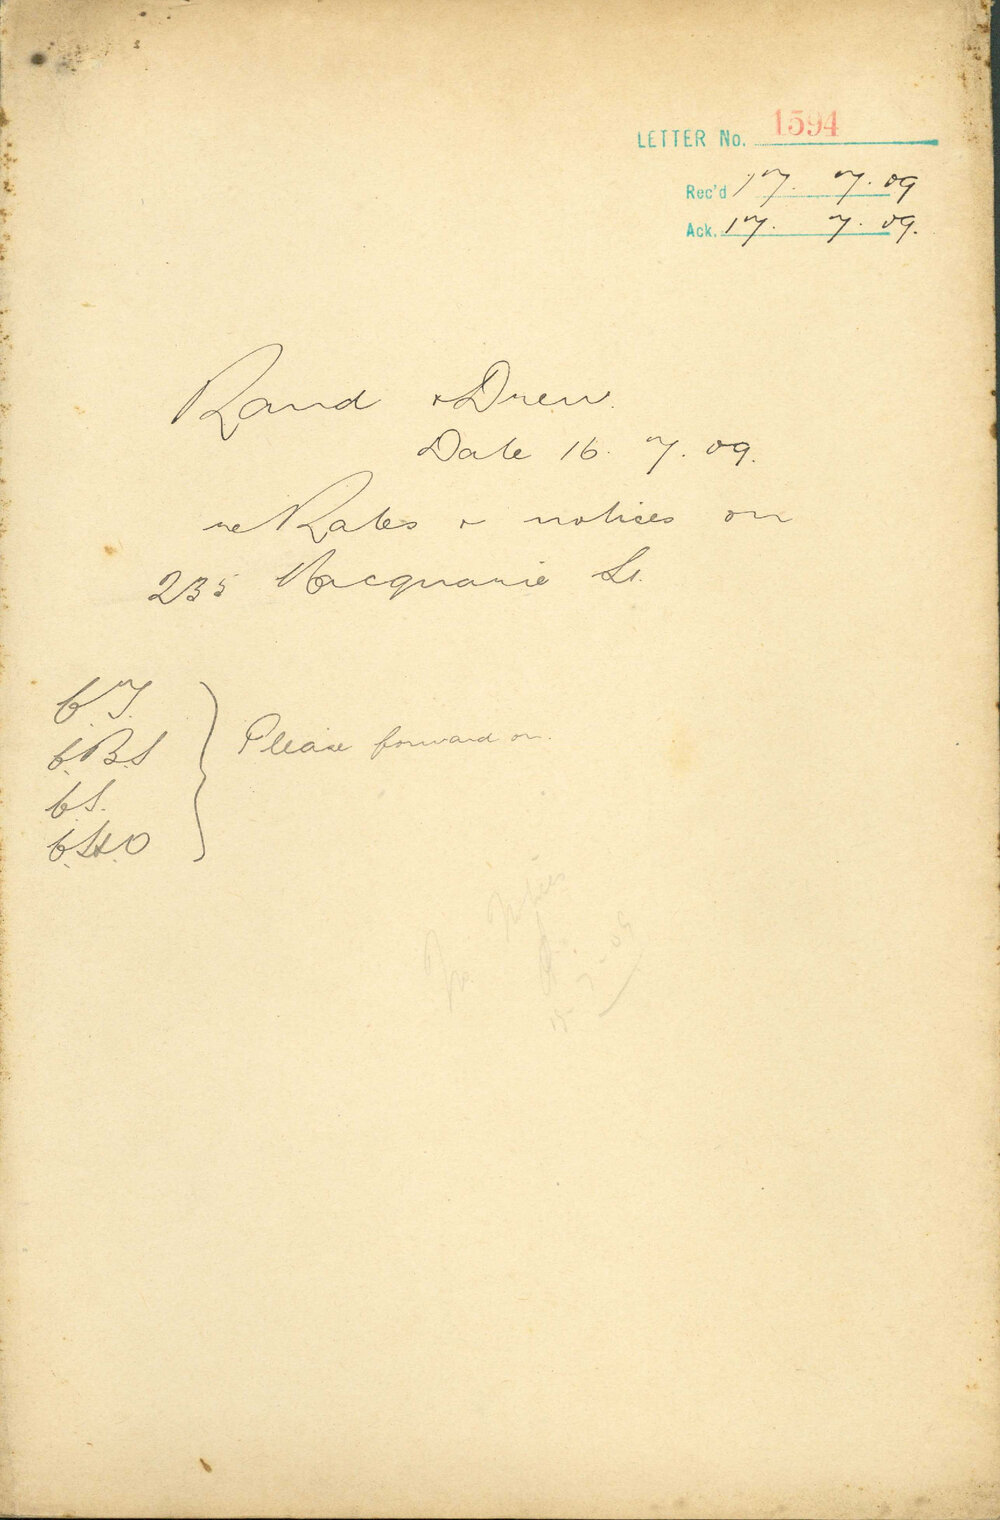 LETTER No. 1594
Rec'd 17. 7. 09
Ack. 17. 7. 09.
Rand & Drew.
Date 16. 7. 09.
re Rates & notices on
235 Macquarie St.
C.T.
C.B.S
C.S.
C.H.O
Please forward on.